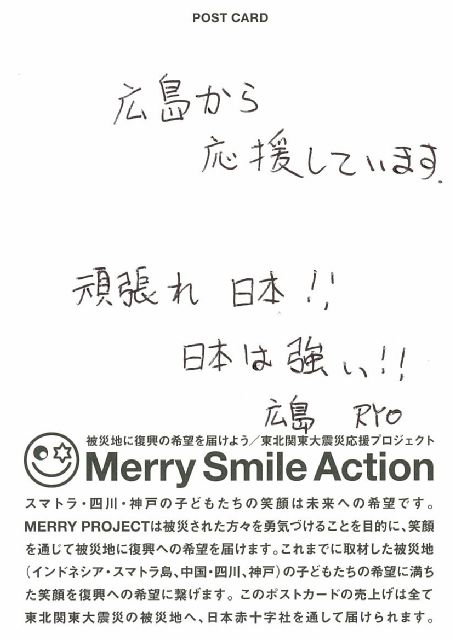 POST CARD
広島から
応援しています.
頑張れ 日本!!
日本は強い!!
広島 RYO
被災地に復興の希望を届けよう／東北関東大震災応援プロジェクト
Merry Smile Action
スマトラ・四川・神戸の子どもたちの笑顔は未来への希望です。
MERRY PROJECTは被災された方々を勇気づけることを目的に、笑顔
を通じて被災地に復興への希望を届けます。これまでに取材した被災地
（インドネシア・スマトラ島、中国・四川、神戸）の子どもたちの希望に満ち
た笑顔を復興への希望に繋げます。このポストカードの売上げは全て
東北関東大震災の被災地へ、日本赤十字社を通して届けられます。